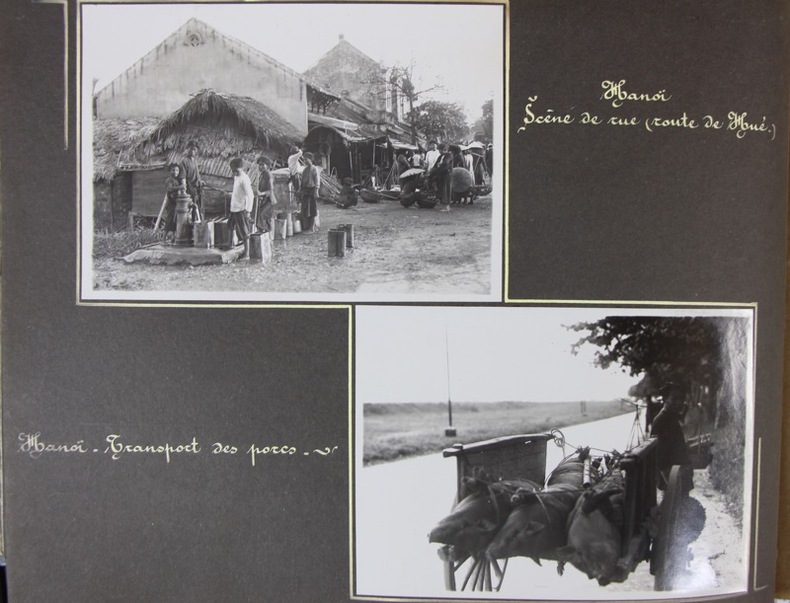 Hanoï
Scène de rue (route de Hué.)
Hanoï - Transport des porcs -